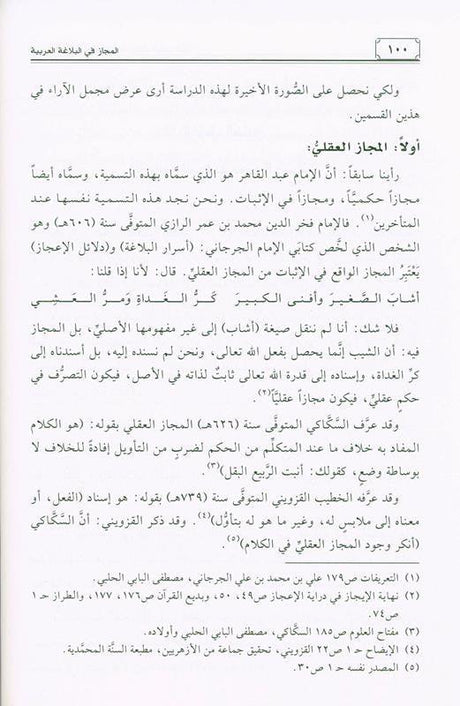 ١٠٠ المجاز في البلاغة العربية
ولكي نحصل على الصُّورة الأخيرة لهذه الدراسة أرى عرض مجمل الآراء في
هذين القسمين.
أولاً: المجاز العقليُّ:
رأينا سابقاً: أنَّ الإمام عبد القاهر هو الذي سمَّاه بهذه التسمية، وسمَّاه أيضاً
مجازاً حكميَّاً، ومجازاً في الإثبات. ونحن نجد هذه التسمية نفسها عند
المتأخرين(١). فالإمام فخر الدين محمد بن عمر الرازي المتوفَّى سنة (٦٠٦هـ) وهو
الشخص الذي لخَّص كتابَي الإمام الجرجاني: (أسرار البلاغة) و(دلائل الإعجاز)
يَعْتَبِرُ المجاز الواقع في الإثبات من المجاز العقليِّ. قال: لأنا إذا قلنا:
أشابَ الصَّغيرَ وأفنى الكبيرَ كَرُّ الغَداةِ وَمرُّ العَشِي
فلا شك: أنا لم ننقل صيغة (أشاب) إلى غير مفهومها الأصليِّ، بل المجاز
فيه: أن الشيب إنَّما يحصل بفعل الله تعالى، ونحن لم نسنده إليه، بل أسندناه إلى
كرِّ الغداة، وإسناده إلى قدرة الله تعالى ثابتٌ لذاته في الأصل، فيكون التصرُّف في
حكمٍ عقليٍّ، فيكون مجازاً عقليَّاً(٢).
وقد عرَّف السَّكاكي المتوفَّى سنة (٦٢٦هـ) المجاز العقلي بقوله: (هو الكلام
المفاد به خلاف ما عند المتكلِّم من الحكم لضربٍ من التأويل إفادةً للخلاف لا
بوساطة وضعٍ، كقولك: أنبت الرَّبيع البقل)(٣).
وقد عرَّفه الخطيب القزويني المتوفَّى سنة (٧٣٩هـ) بقوله: هو إسناد (الفعل، أو
معناه إلى ملابسٍ له، وغير ما هو له بتأوُّل)(٤). وقد ذكر القزويني: أنَّ السَّكاكي
(أنكر وجود المجاز العقليِّ في الكلام)(٥).
(١) التعريفات ص١٧٩ علي بن محمد بن علي الجرجاني، مصطفى البابي الحلبي.
(٢) نهاية الإيجاز في دراية الإعجاز ص٤٩، ٥٠، وبديع القرآن ص١٧٦، ١٧٧، والطراز حـ ١
ص٧٤.
(٣) مفتاح العلوم ص١٨٥ السكَّاكي، مصطفى البابي الحلبي وأولاده.
(٤) الإيضاح حـ ١ ص٢٢ القزويني، تحقيق جماعة من الأزهريين، مطبعة السنَّة المحمَّدية.
(٥) المصدر نفسه حـ ١ ص٣٠.